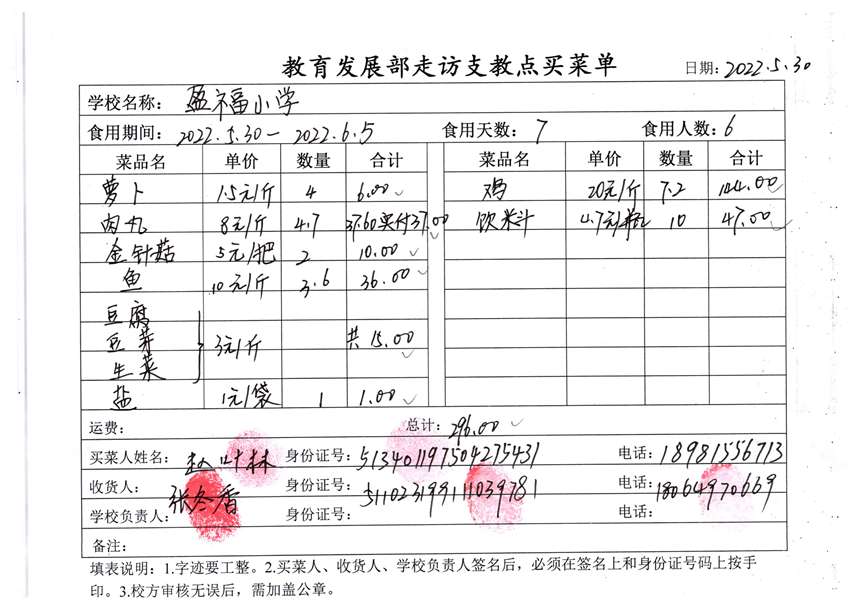 教育发展部走访支教点买菜单
日期: 2022.5.30
学校名称: 盈福小学
食用期间: 2022.5.30 — 2022.6.5 食用天数: 7 食用人数: 6
菜品名 单价 数量 合计 菜品名 单价 数量 合计
萝卜 1.5元/斤 4 6.00 鸡 20元/斤 7.2 144.00
肉丸 8元/斤 4.7 37.60实付37.00 饮料 4.7元/瓶 10 47.00
金针菇 5元/把 2 10.00
鱼 10元/斤 3.6 36.00
豆腐
豆芽 3元/斤 共 15.00
生菜
盐 1元/袋 1 1.00
运费: 总计: 296.00
买菜人姓名: 赵叶林 身份证号: 513401197504275431 电话: 18981556713
收货人: 张冬香 身份证号: 511023199111039781 电话: 18064970669
学校负责人: 身份证号: 电话:
备注:
填表说明: 1.字迹要工整。2.买菜人、收货人、学校负责人签名后，必须在签名上和身份证号码上按手
印。3.校方审核无误后，需加盖公章。